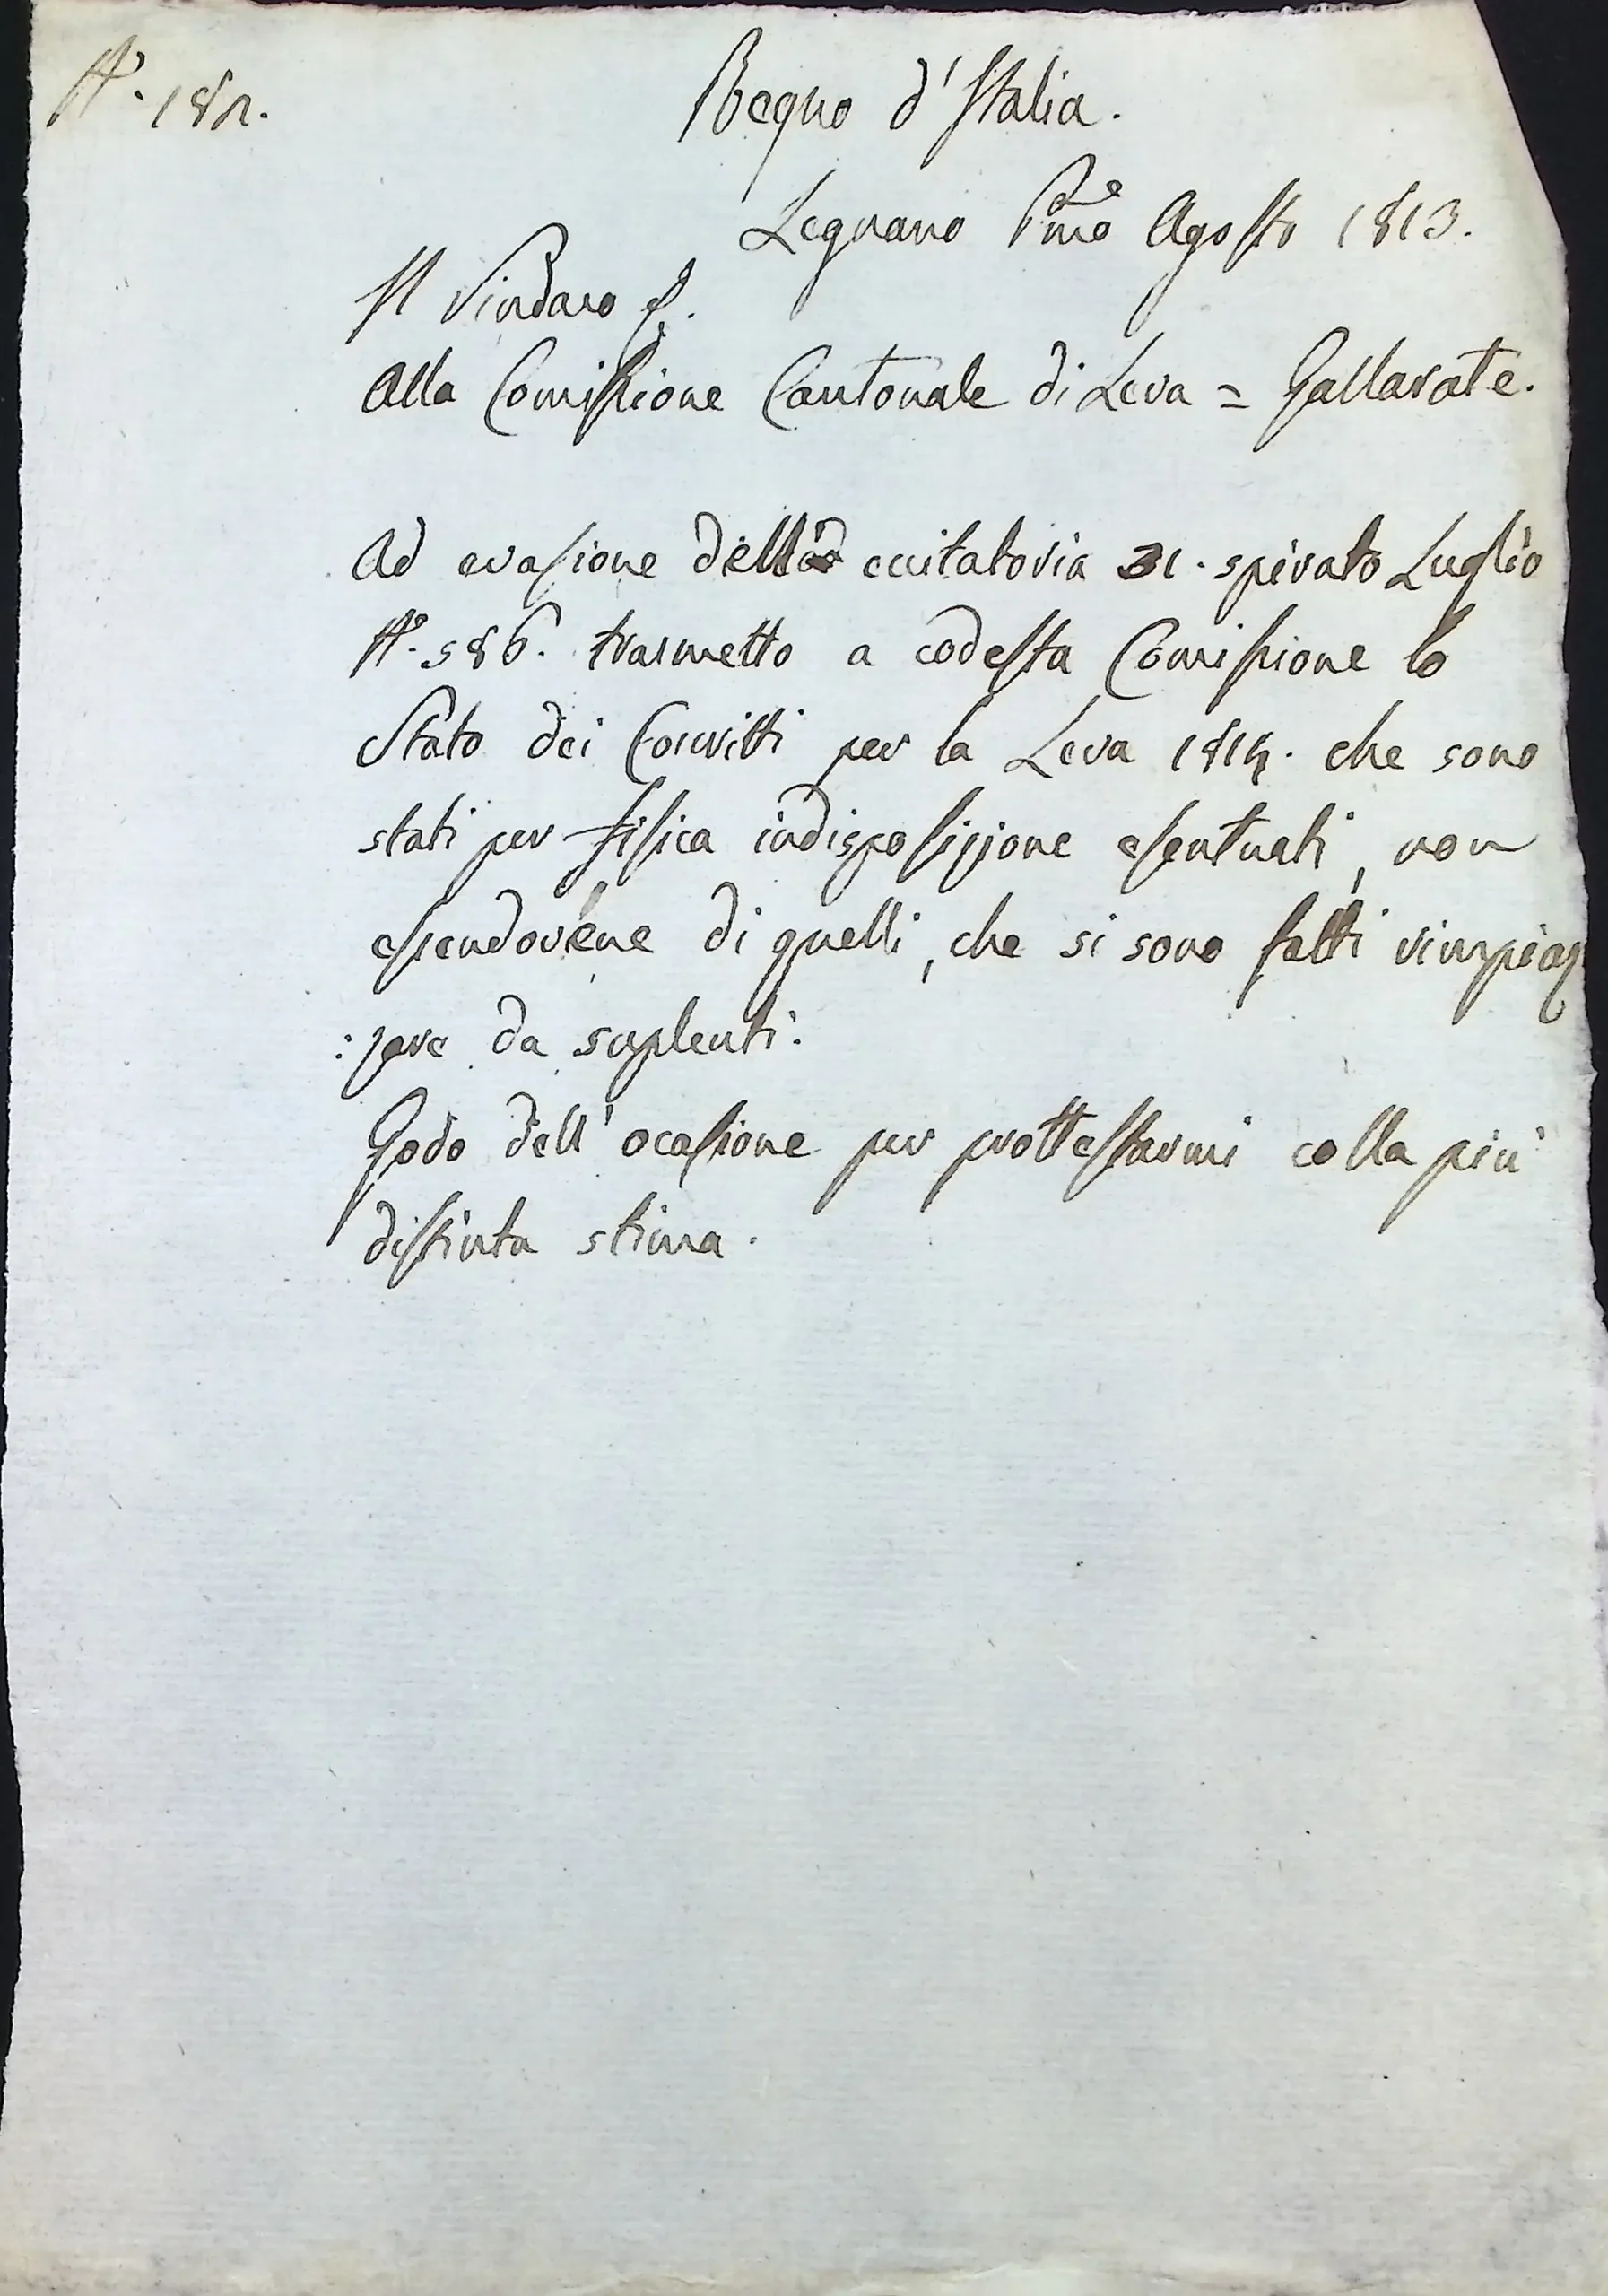 N.° 182.
Regno d'Italia.
Legnano Pmo Agosto 1813.
Il Sindaco
Alla Comissione Cantonale di Leva = Gallarate.
Ad evasione dell'ad eccitatoria 31. spirato Luglio
N.° 586. trasmetto a codesta Comissione lo
Stato dei Coscritti per la Leva 1814. che sono
stati per fisica indisposizione esentuati, non
essendovene di quelli, che si sono fatti rimpiaz
:zare da suplenti.
Godo dell'ocasione per prottestarmi colla più
distinta stima.